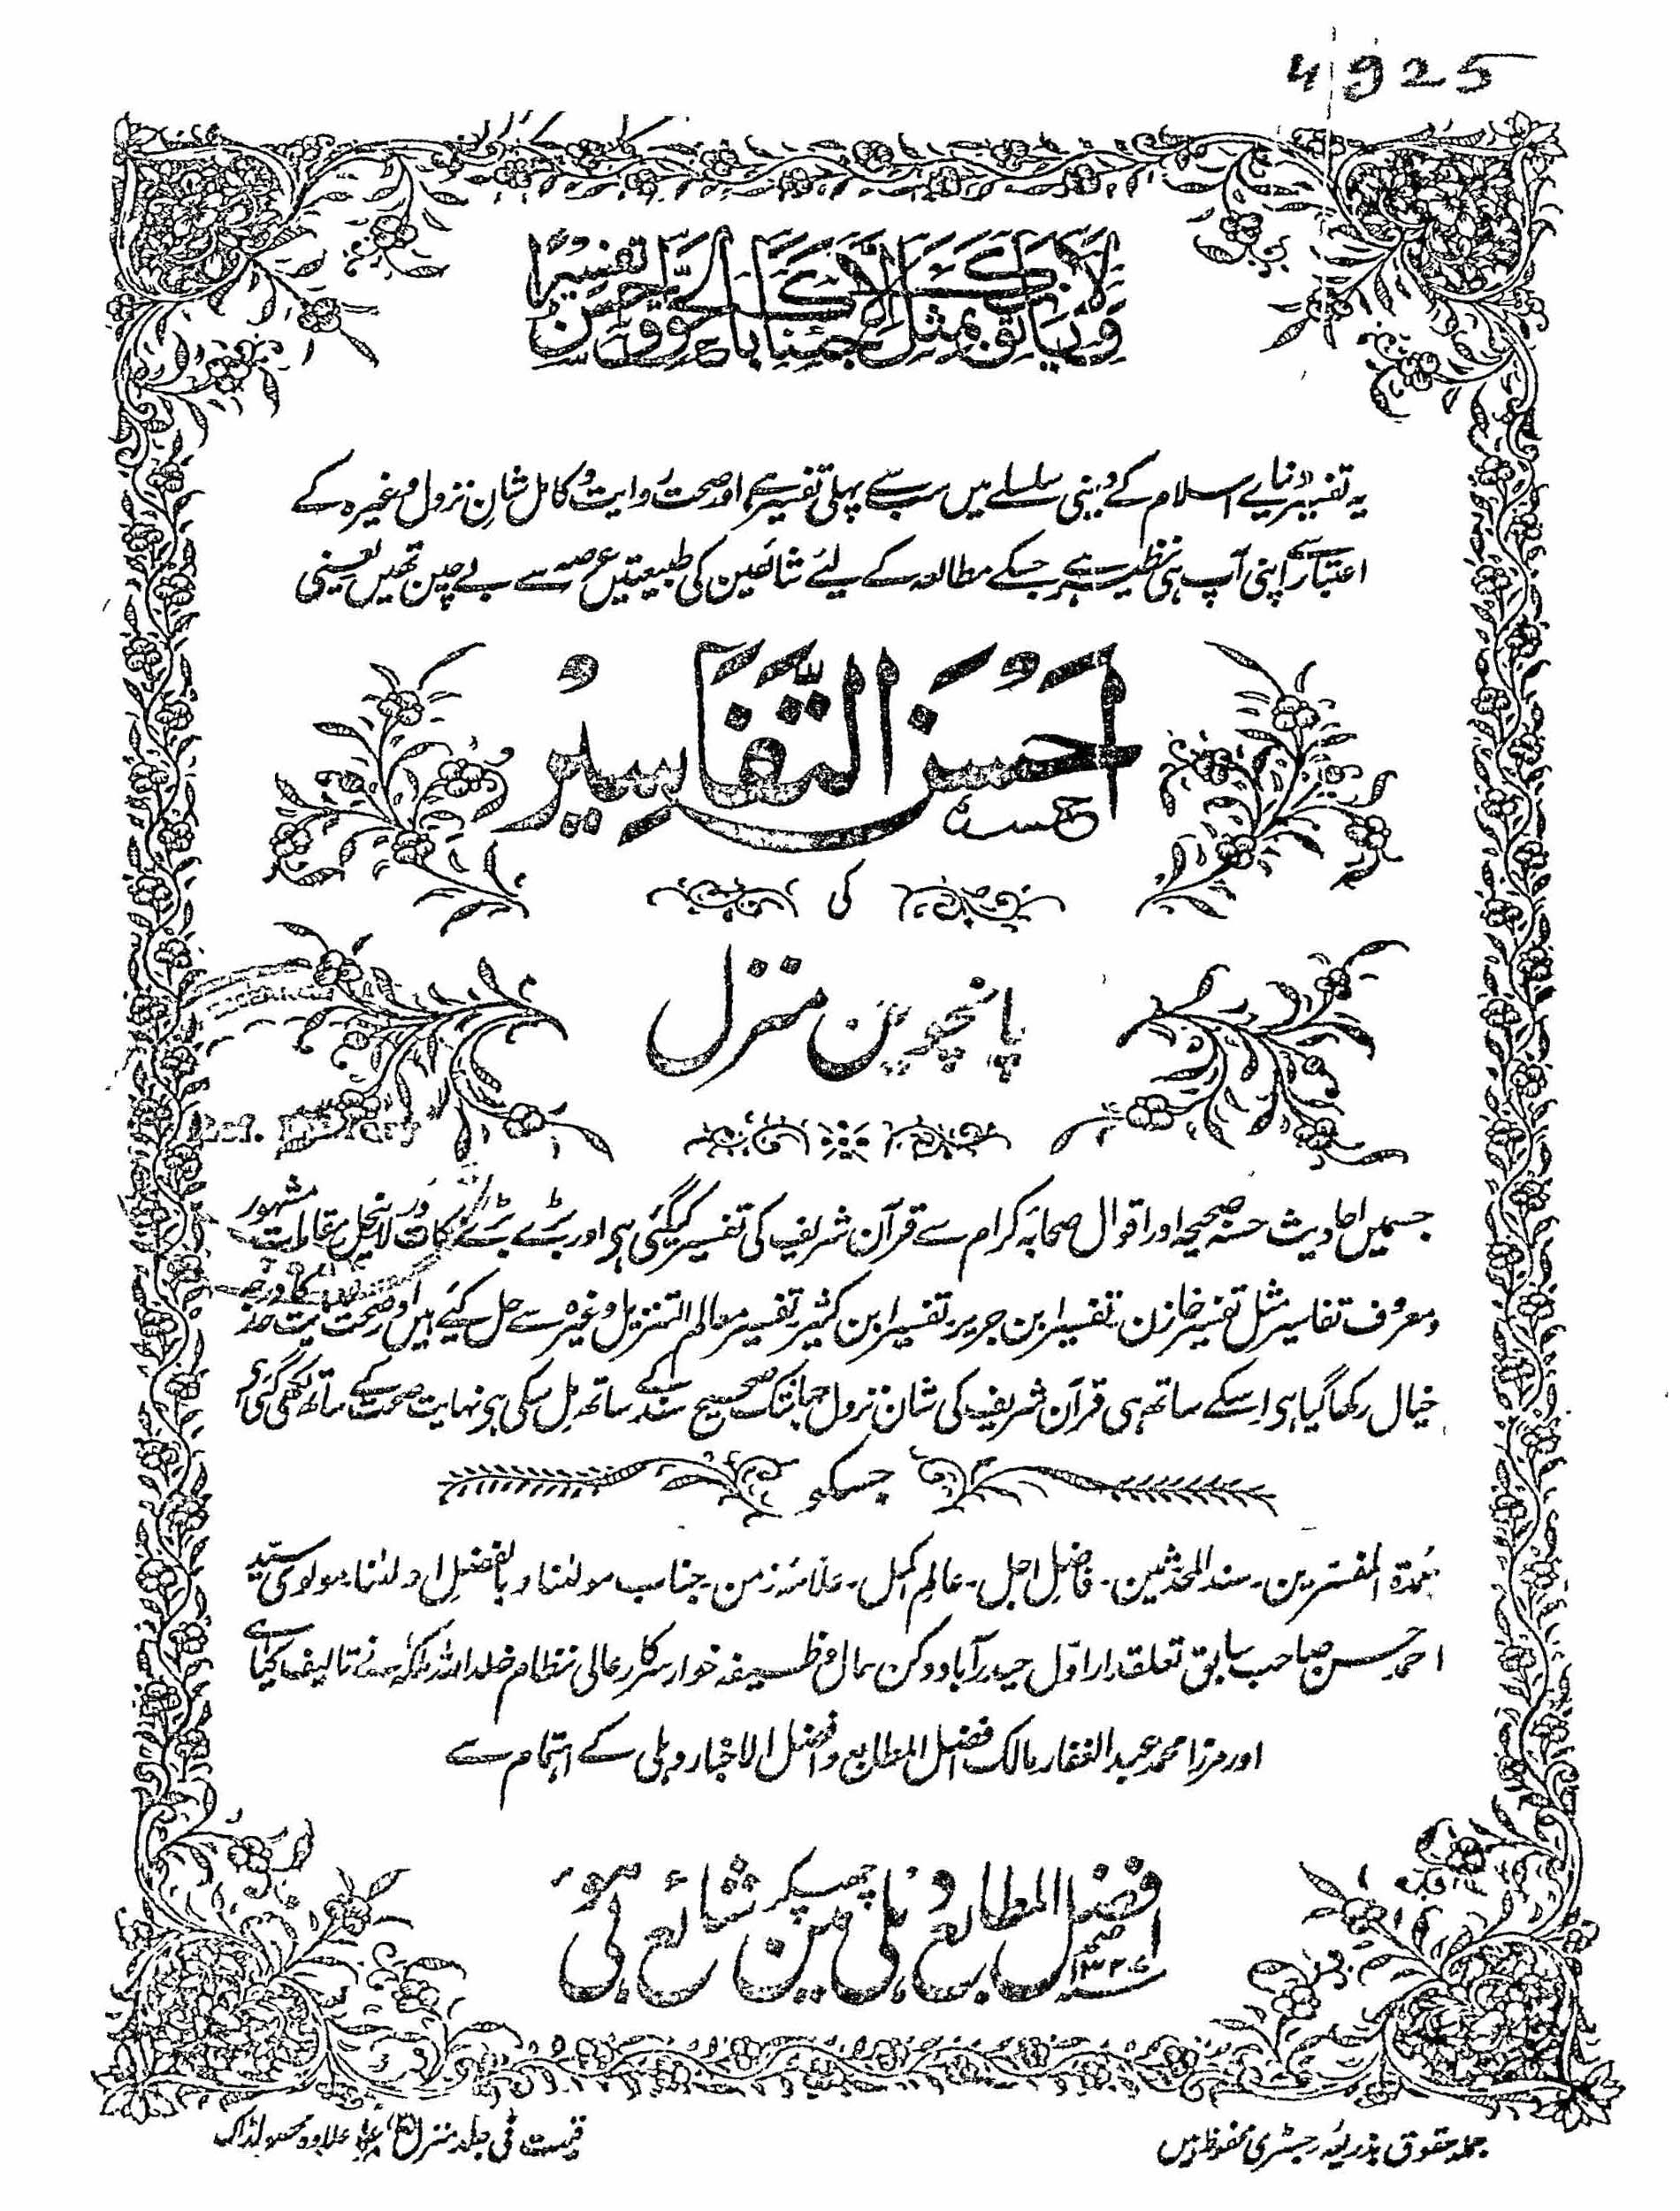 4925
وَلَا يَأْتُونَكَ بِمَثَلٍ إِلَّا جِئْنَاكَ بِالْحَقِّ وَأَحْسَنَ تَفْسِيرًا
یہ تفسیر دنیائے اسلام کے دینی سلسلے میں سب سے پہلی تفسیر ہے اور صحت روایت و کامل شانِ نزول وغیرہ کے
اعتبار سے اپنی آپ ہی نظیر ہے جسکے مطالعہ کے لئے شائقین کی طبیعتیں عرصہ سے بے چین تھیں یعنی
اَحْسَنُ التَّفَاسِیْرُ
کی
پانچوین منزل
جسمیں احادیث حسنہ صحیحہ اور اقوال صحابہ کرام سے قرآن شریف کی تفسیر کیگئی ہی اور بڑے بڑے نکات لاینحل مقامات مشہور
ومعروف تفاسیر مثل تفسیر خازن۔ تفسیر ابن جریر۔ تفسیر ابن کثیر۔ تفسیر معالم التنزیل وغیرہ سے حل کئے ہیں اور صحت
خیال رکھا گیا ہی اسکے ساتھ ہی قرآن شریف کی شان نزول جہانتک صحیح سند کے ساتھ مل سکی ہی نہایت صحت کے ساتھ لکھی گئی ہی
جسکو
عمدۃ المفسرین۔ سند المحدثین۔ فاضل اجل۔ عالم اکمل۔ علامہ زمن۔ جناب مولٰنا و بالفضل اولٰنا۔ مولوی سیّد
احمد حسن صاحب سابق تعلقدار اوّل حیدرآباد دکن حال وظیفہ خوار سرکار عالی نظام خلد اللہ ملکہ نے تالیف کیا ہے
اور مرزا محمد عبد الغفار مالک افضل المطابع و افضل الاخبار دہلی کے اہتمام سے
افضل المطابع دہلی مین چھپکر شائع ہوئی
جملہ حقوق بذریعہ رجسٹری محفوظ ہیں
قیمت فی جلد منزل علاوہ محصولڈاک